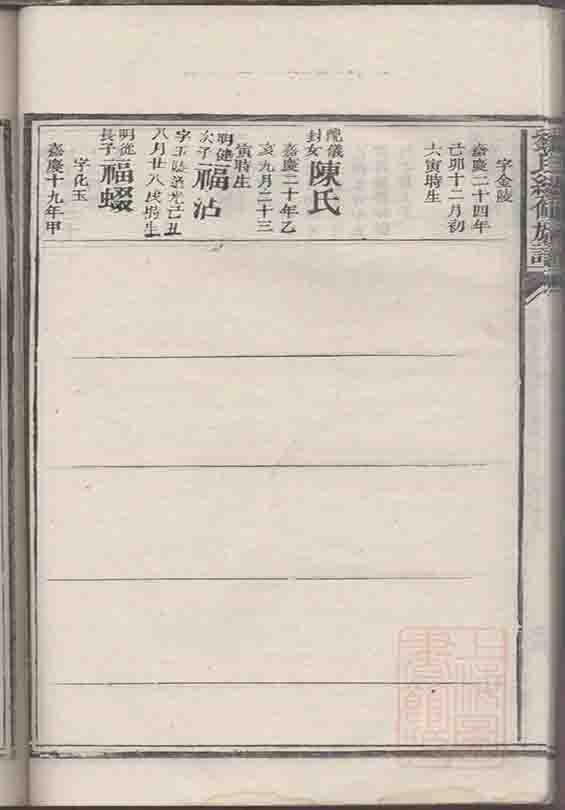 字金陵
嘉慶二十四年
己卯十二月初
六寅時生
配儀封女陳氏
嘉慶二十年乙
亥九月二十三
寅時生
明健次子福沾
字玉 道光己丑
八月廿八戌時生
明從長子福蝃
字化玉
嘉慶十九年甲
氏 修族譜
上海圖書館藏